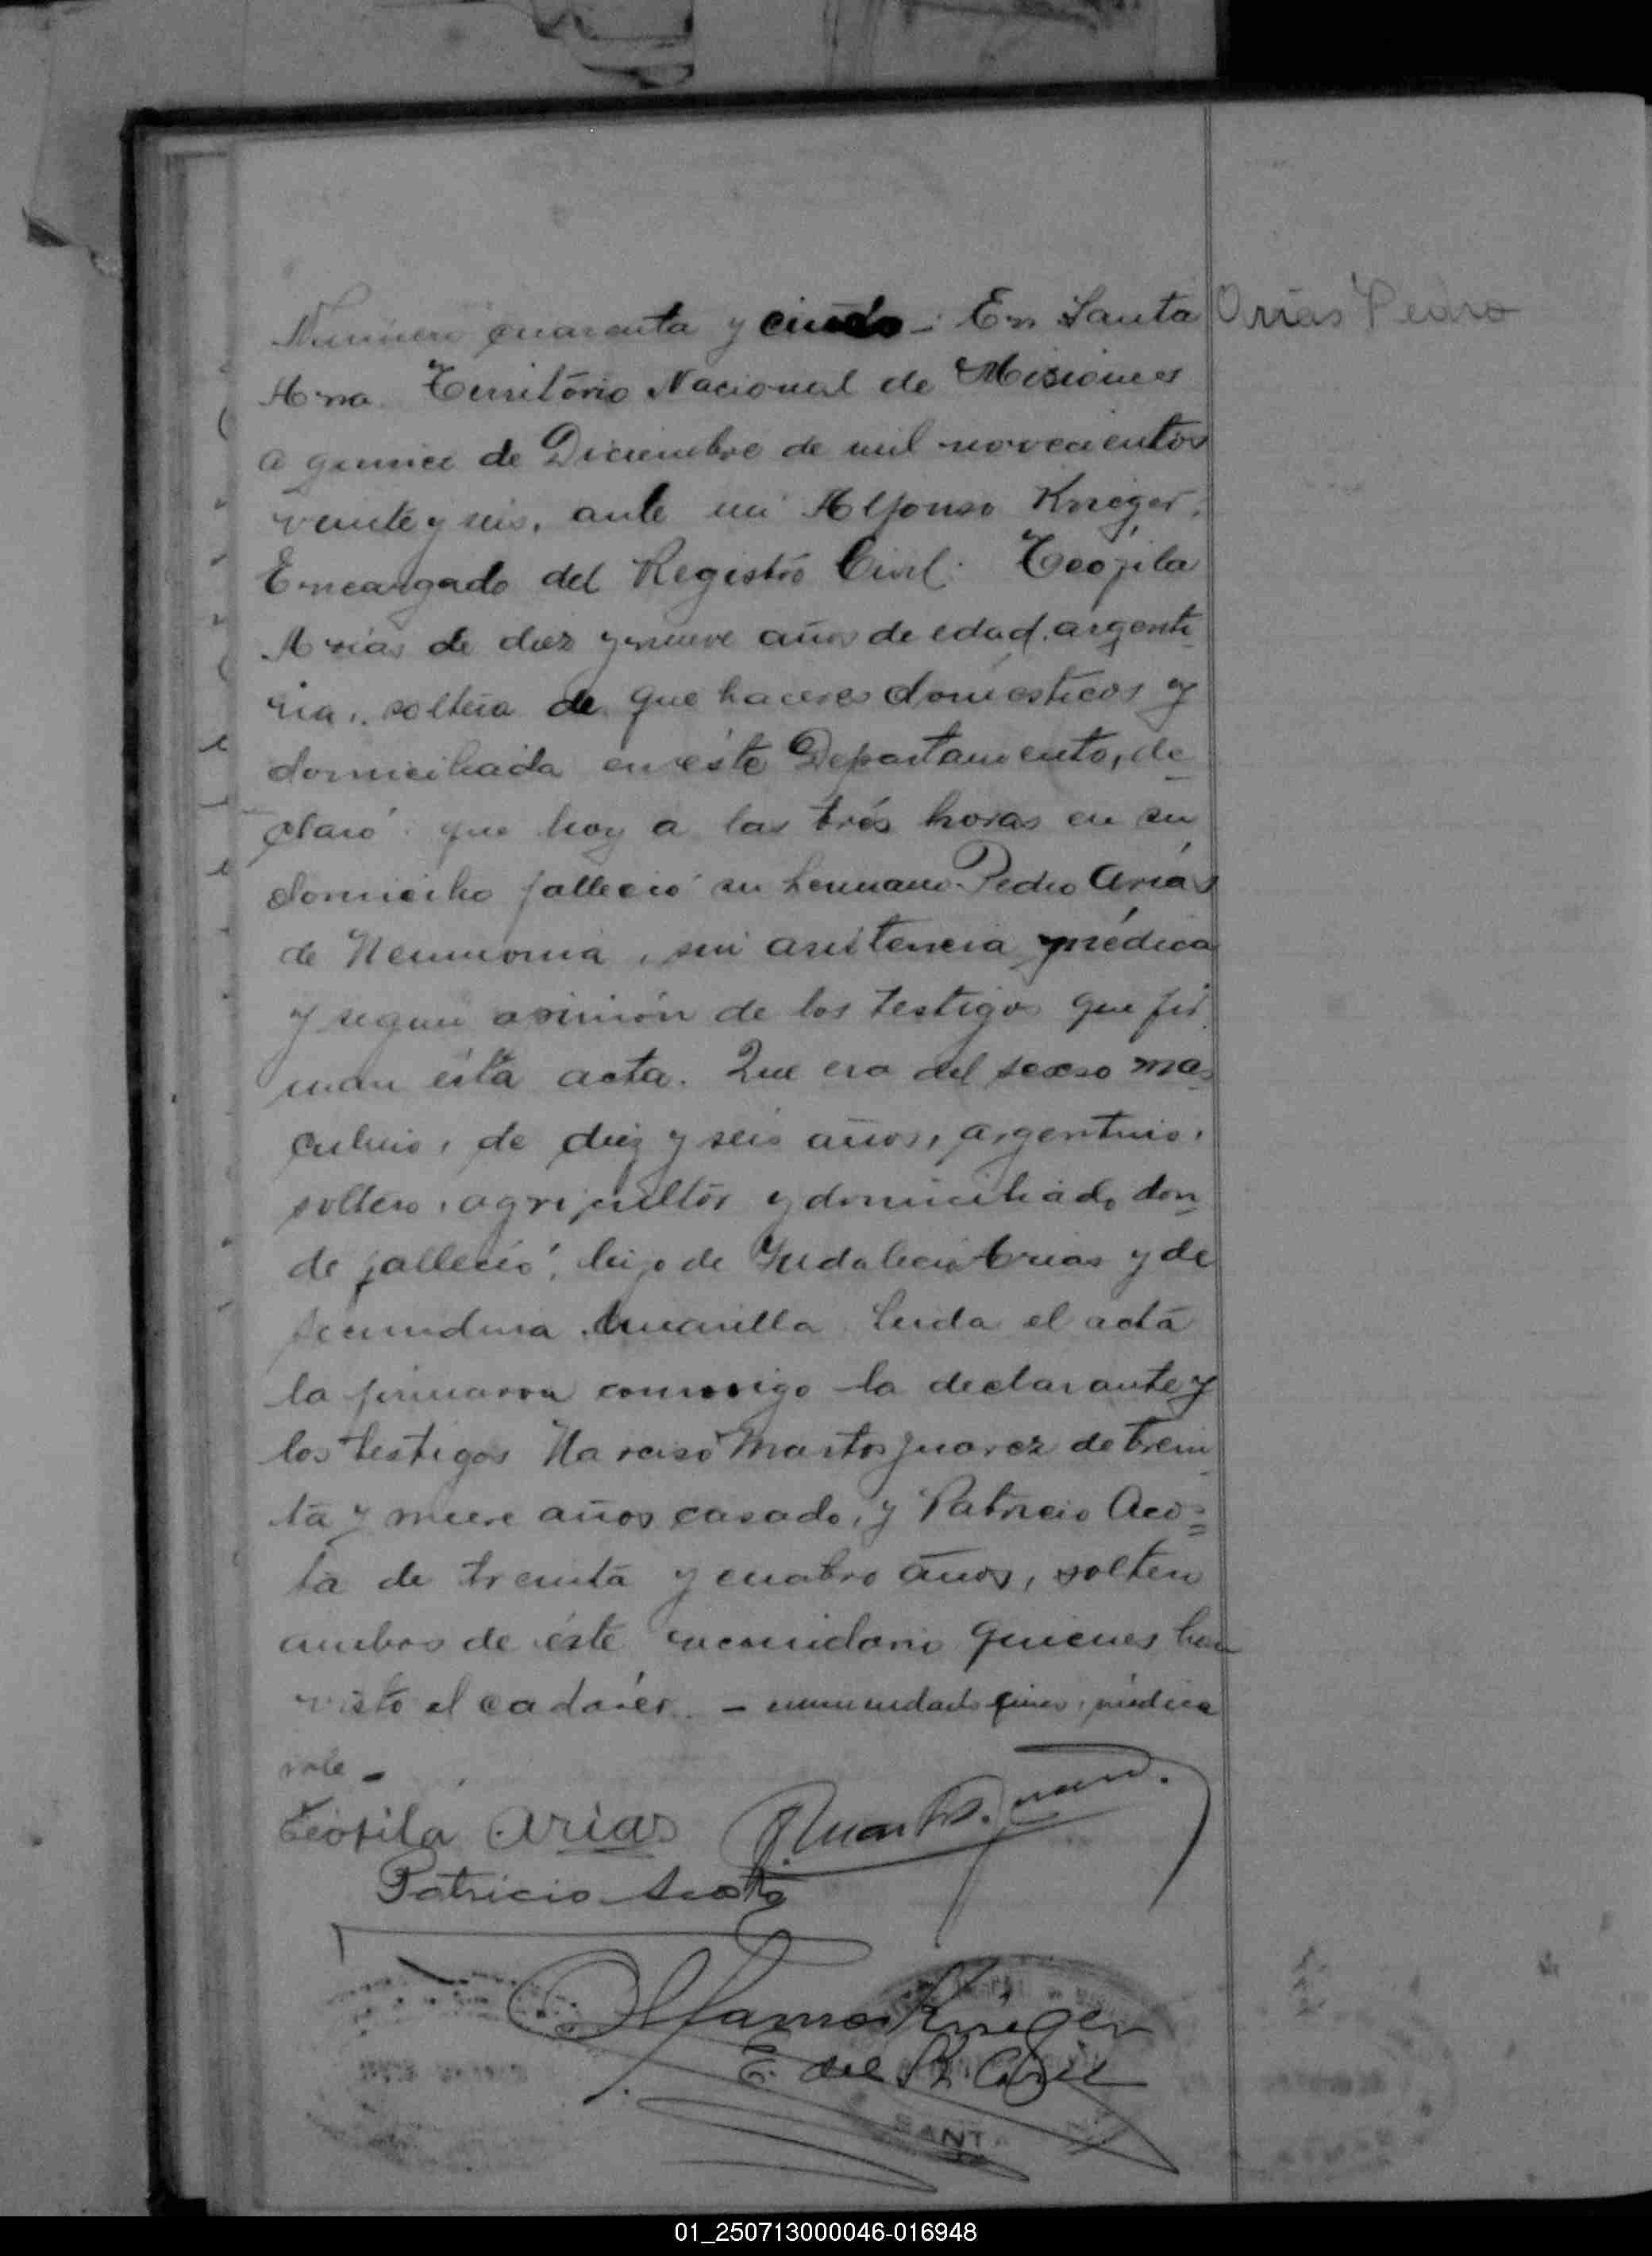 Arias Pedro
Número cuarenta y cinco - En Santa
Ana Territorio Nacional de Misiones
a quince de Diciembre de mil novecientos
veinte y seis, ante mi Alfonso Krieger,
Encargado del Registro Civil: Teófila
Arias de diez y nueve años de edad, argenti
na, soltera de que haceres domésticos y
domiciliada en éste Departamento, de
claró: que hoy a las trés horas en su
domicilio falleció su hermano Pedro Arias
de Neumonia, sin asistencia médica
y segun opinión de los testigos que fir
man ésta acta. Que era del sexso mas
culino, de diez y seis años, argentino,
soltero, agricultor y domiciliado don
de falleció, hijo de Indalecio Arias y de
Secundina. Leida el acta
la firmaron conmigo la declarante y
los testigos Narciso Martos Juarez de trein
ta y nueve años casado, y Patricio Acos
ta de treinta y cuatro años, soltero
ambos de éste vecindario quienes han
visto el cadáver. - enmendado cinco, médica
vale -
Teofila Arias
Patricio Acosta
Alfonso Krieger
E. del R. Civil
SANTA
01_250713000046-016948